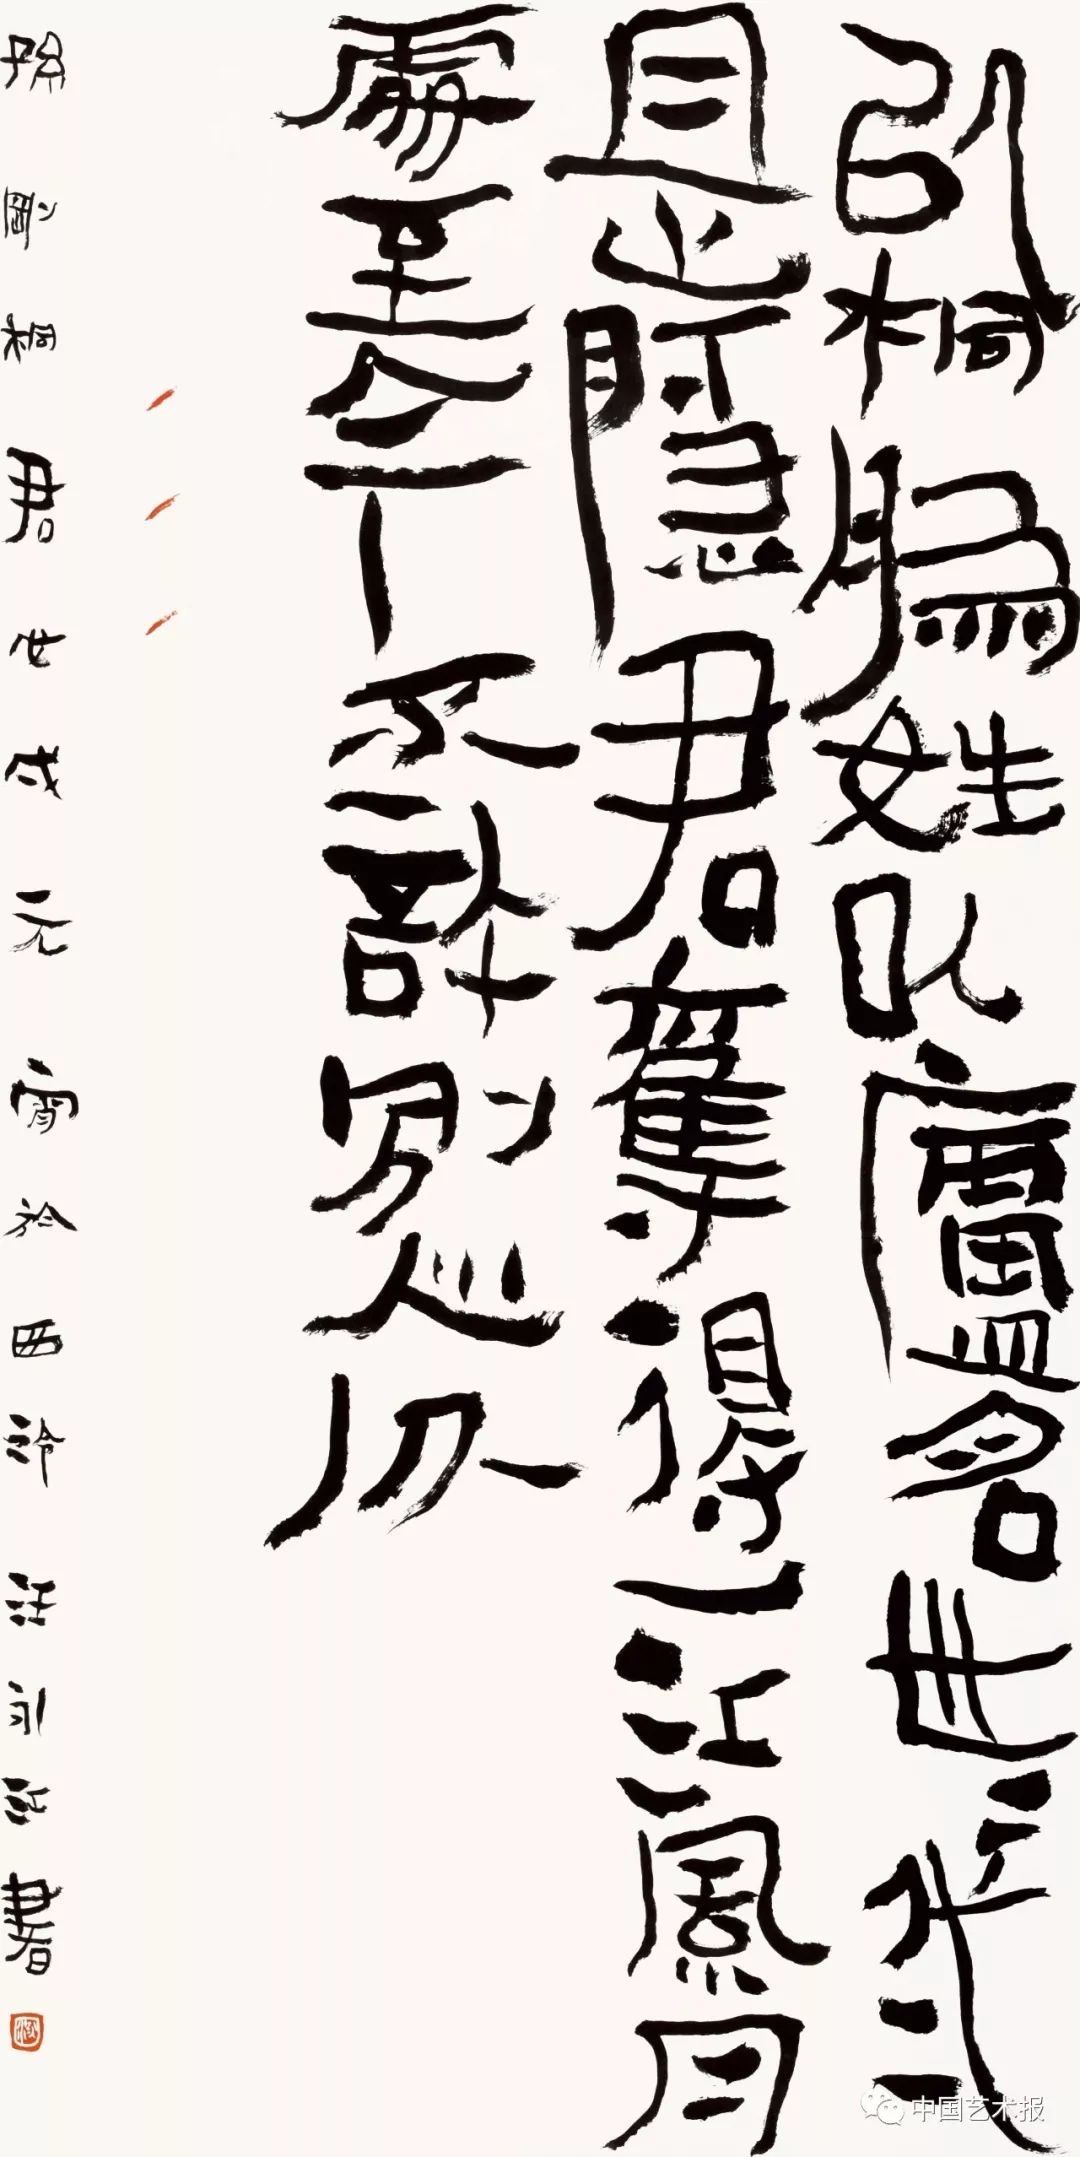 以桐為姓以廬名世〻代〻
是隱君奪得一江風月
處至今不許別人分
孫剛桐君 戌元宵於西泠汪永江書
中国艺术报